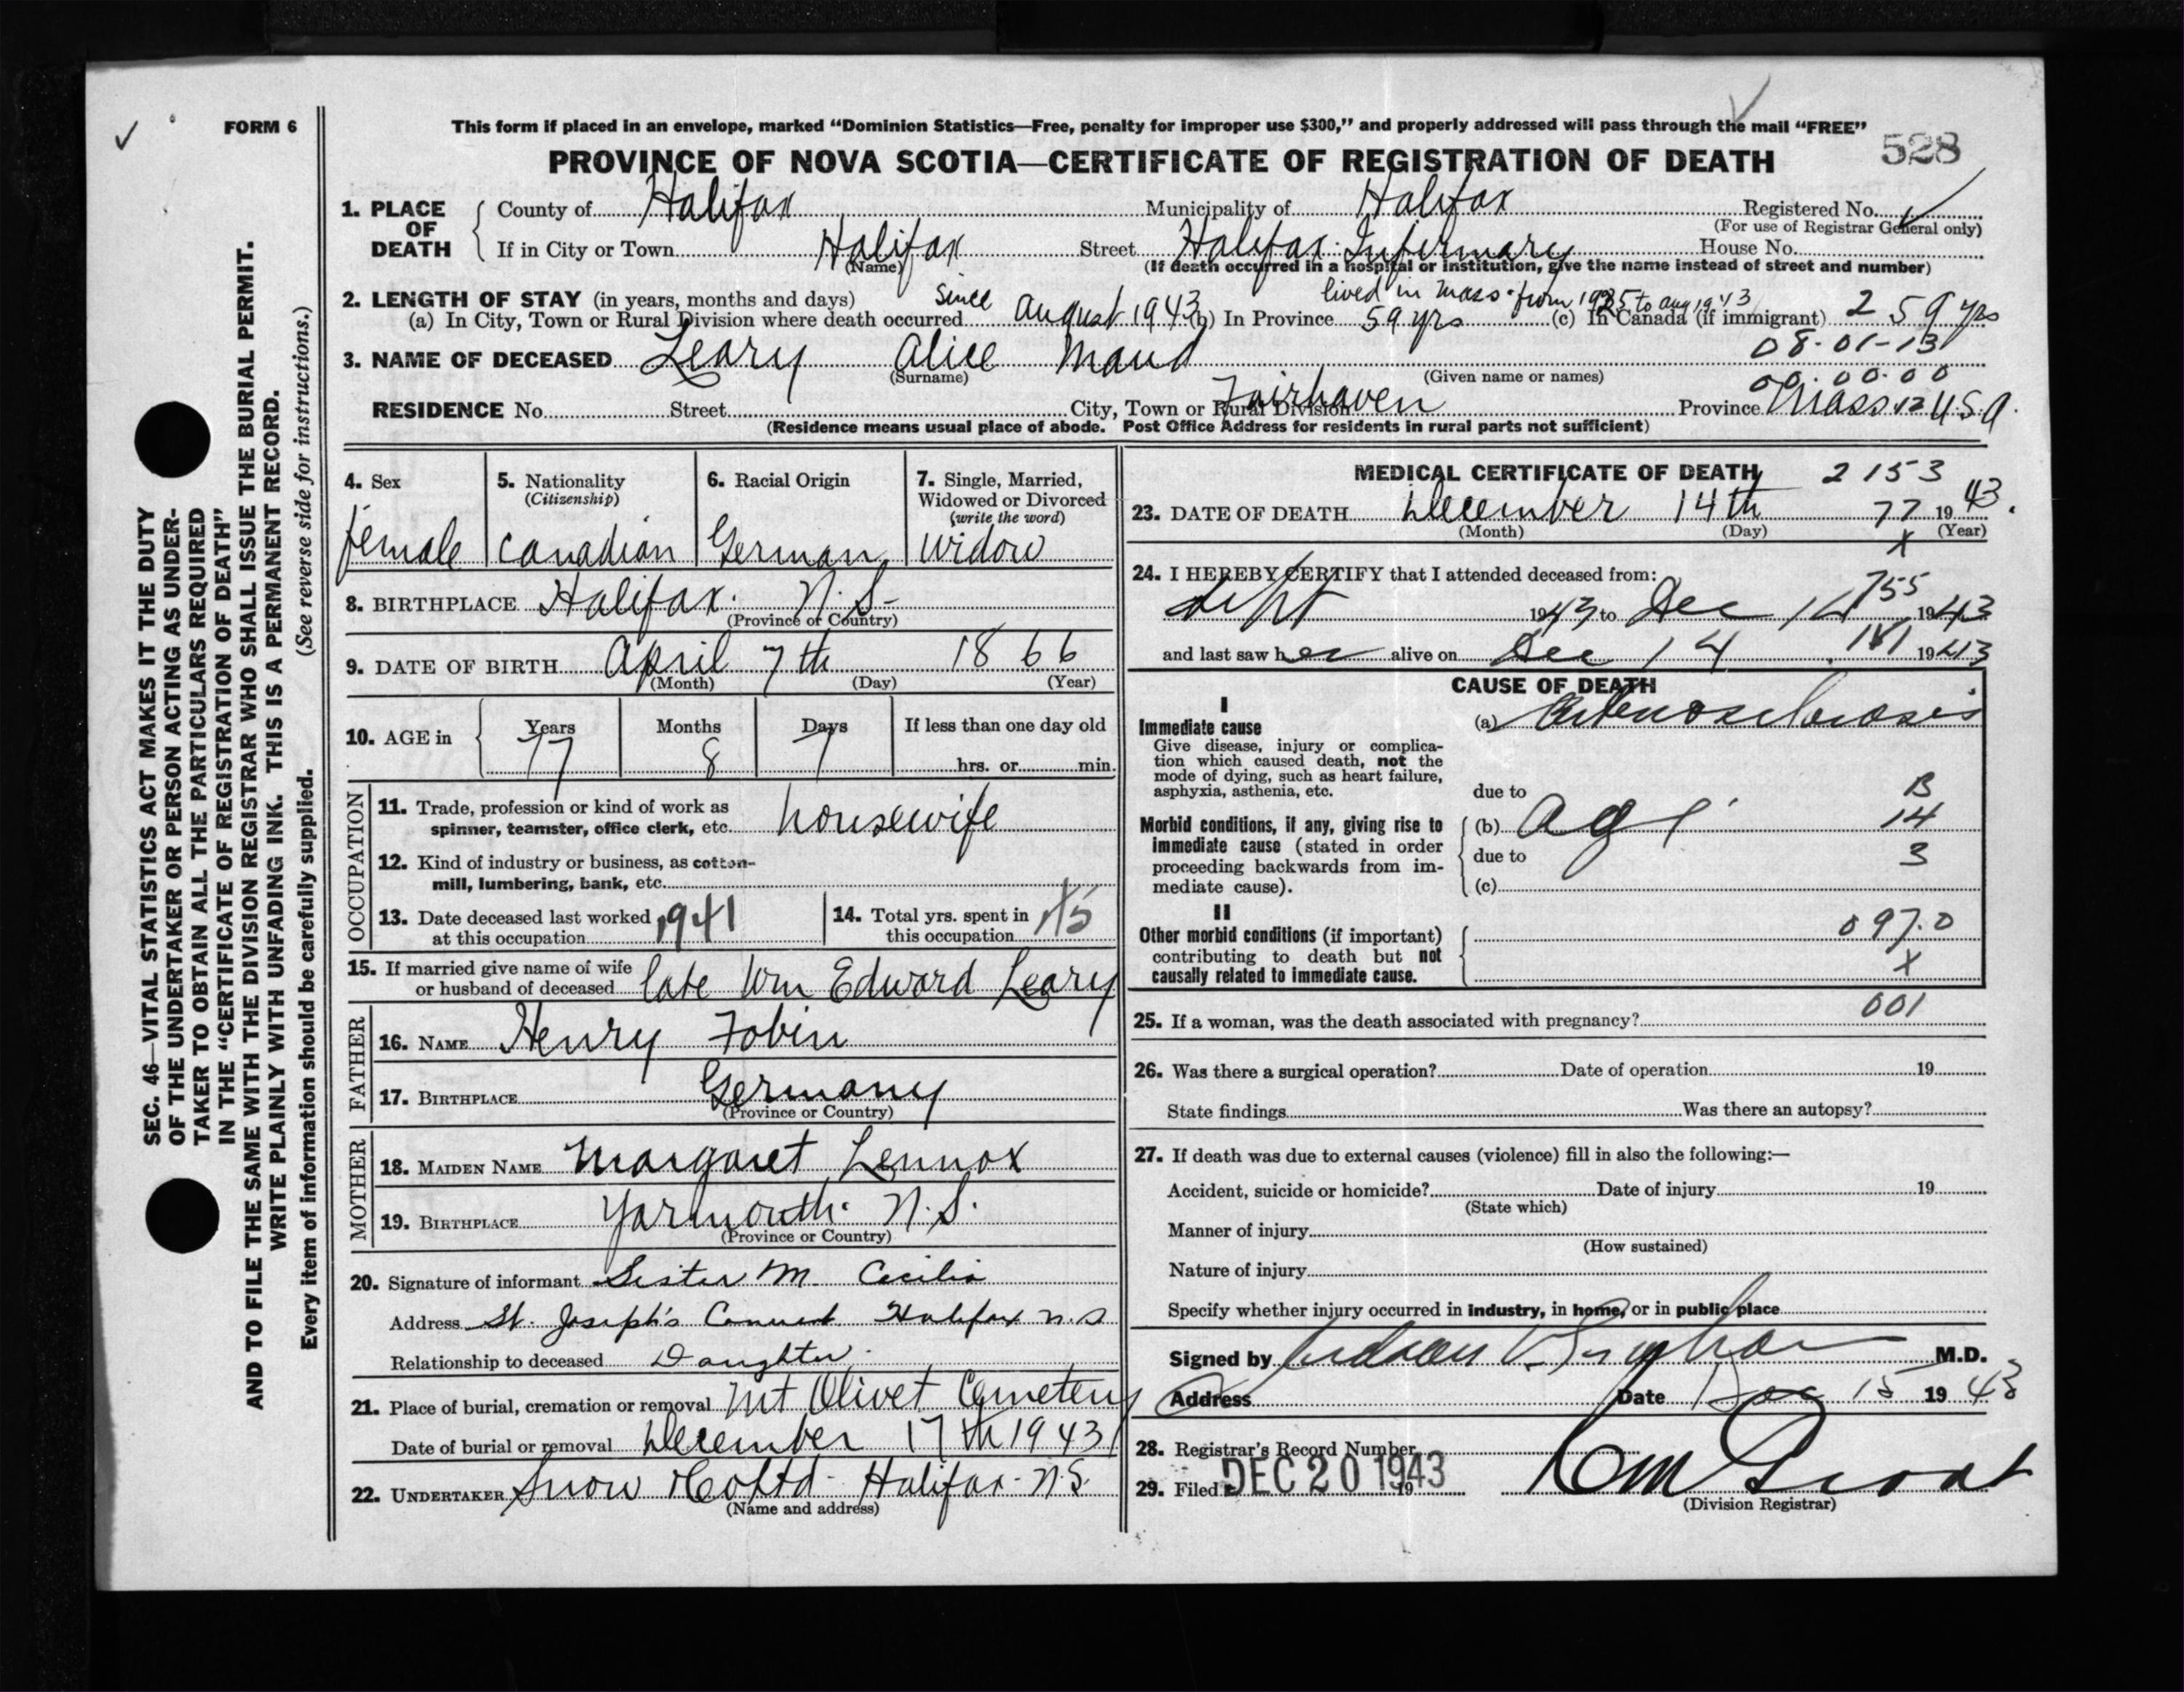 FORM 6
This form if placed in an envelope, marked "Dominion Statistics—Free, penalty for improper use $300," and properly addressed will pass through the mail "FREE"
528
PROVINCE OF NOVA SCOTIA—CERTIFICATE OF REGISTRATION OF DEATH
1. PLACE OF DEATH
County of Halifax Municipality of Halifax Registered No.
(For use of Registrar General only)
If in City or Town Halifax Street Halifax Infirmary House No.
(Name) (If death occurred in a hospital or institution, give the name instead of street and number)
2. LENGTH OF STAY (in years, months and days) since lived in Mass. from 1925 to Aug 1943
(a) In City, Town or Rural Division where death occurred August 1943 (b) In Province 59 yrs (c) In Canada (if immigrant) 2 59 yrs
08-01-13
3. NAME OF DECEASED Leary Alice Maud
(Surname) (Given name or names) 00.00.00
RESIDENCE No. Street City, Town or Rural Division Fairhaven Province Mass 12 U.S.A.
(Residence means usual place of abode. Post Office Address for residents in rural parts not sufficient)
4. Sex
female
5. Nationality
(Citizenship)
Canadian
6. Racial Origin
German
7. Single, Married, Widowed or Divorced
(write the word)
widow
8. BIRTHPLACE Halifax. N.S.
(Province or Country)
9. DATE OF BIRTH April 7th 1866
(Month) (Day) (Year)
10. AGE in Years Months Days If less than one day old
77 8 7 hrs. or min.
OCCUPATION
11. Trade, profession or kind of work as
spinner, teamster, office clerk, etc. housewife
12. Kind of industry or business, as cotton-
mill, lumbering, bank, etc.
13. Date deceased last worked
at this occupation 1941
14. Total yrs. spent in
this occupation
15. If married give name of wife
or husband of deceased late Wm Edward Leary
FATHER
16. NAME Henry Tobin
17. BIRTHPLACE Germany
(Province or Country)
MOTHER
18. MAIDEN NAME Margaret Lennox
19. BIRTHPLACE Yarmouth. N.S.
(Province or Country)
20. Signature of informant Sister M. Cecilia
Address St. Joseph's Convent Halifax N.S
Relationship to deceased Daughter.
21. Place of burial, cremation or removal Mt Olivet Cemetery
Date of burial or removal December 17th 1943
22. UNDERTAKER Snow & Co Ltd - Halifax - N.S.
(Name and address)
MEDICAL CERTIFICATE OF DEATH 2153
23. DATE OF DEATH December 14th 77 1943.
(Month) (Day) (Year)
x
24. I HEREBY CERTIFY that I attended deceased from:
755
Sept 1943 to Dec 14 1943
and last saw her alive on Dec 14 1943
CAUSE OF DEATH
I
Immediate cause
Give disease, injury or complica-
tion which caused death, not the
mode of dying, such as heart failure,
asphyxia, asthenia, etc.
(a) Arteriosclerosis
due to B
Morbid conditions, if any, giving rise to
immediate cause (stated in order
proceeding backwards from im-
mediate cause).
(b) Age 14
due to 3
(c)
II
Other morbid conditions (if important)
contributing to death but not
causally related to immediate cause.
097.0
x
001
25. If a woman, was the death associated with pregnancy?
26. Was there a surgical operation? Date of operation 19
State findings Was there an autopsy?
27. If death was due to external causes (violence) fill in also the following:—
Accident, suicide or homicide? Date of injury 19
(State which)
Manner of injury
(How sustained)
Nature of injury
Specify whether injury occurred in industry, in home, or in public place
Signed by M.D.
Address Date Dec 15 1943
28. Registrar's Record Number
29. Filed DEC 20 1943 19
(Division Registrar)
SEC. 46—VITAL STATISTICS ACT MAKES IT THE DUTY
OF THE UNDERTAKER OR PERSON ACTING AS UNDER-
TAKER TO OBTAIN ALL THE PARTICULARS REQUIRED
IN THE "CERTIFICATE OF REGISTRATION OF DEATH"
AND TO FILE THE SAME WITH THE DIVISION REGISTRAR WHO SHALL ISSUE THE BURIAL PERMIT.
WRITE PLAINLY WITH UNFADING INK. THIS IS A PERMANENT RECORD.
Every item of information should be carefully supplied. (See reverse side for instructions.)